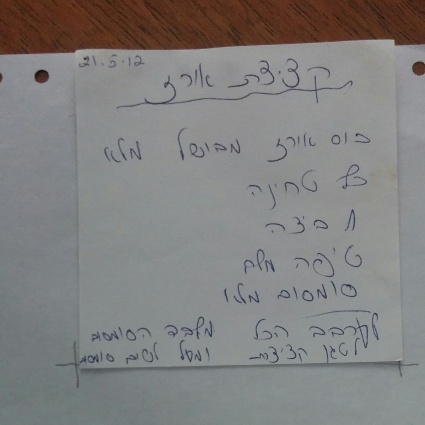 21.5.12
קציצת אורז
כוס אורז מבושל מלא
כף טחינה
1 ביצה
טיפה מלח
סומסום מלא
לערבב הכל מלבד הסומסום
לטגן קציצות ומעל לשים סומסום